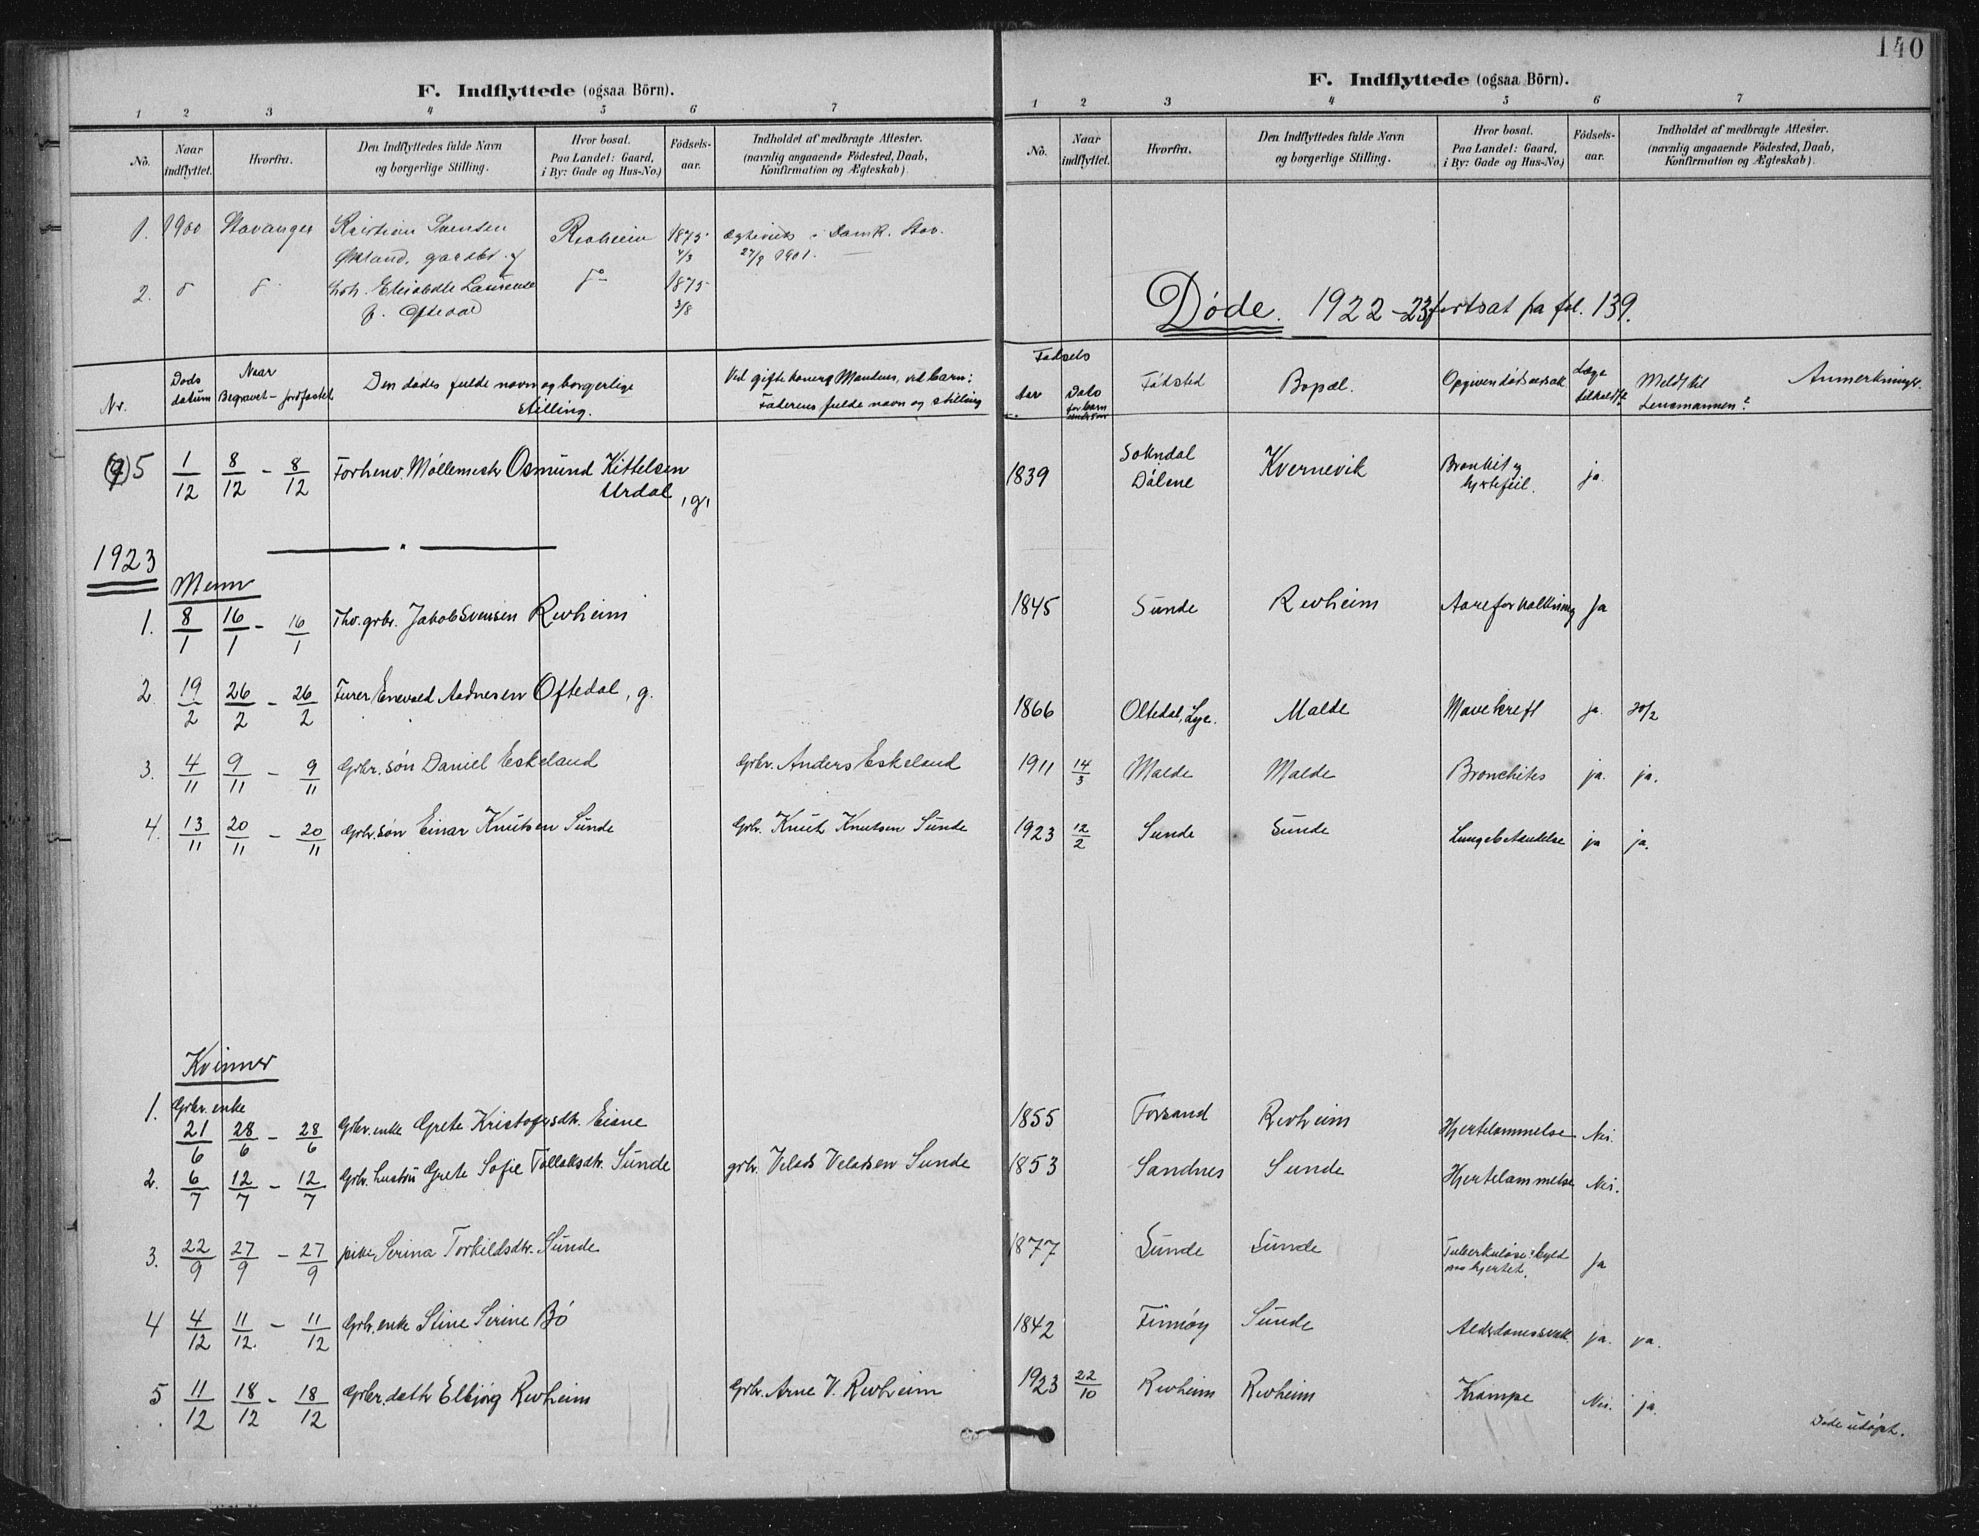 140
F. Indflyttede (ogsaa Börn).
1 2 3 4 5 6 7
No. Naar indflyttet. Hvorfra. Den Indflyttedes fulde Navn og borgerlige Stilling. Hvor bosat. Paa Landet: Gaard, i By: Gade og Hus-No.) Födsels-aar. Indholdet af medbragte Attester. (navnlig angaaende Födested, Daab, Konfirmation og Ægteskab).
1. 1900 Stavanger Kristian Svensen Revheim 1875 Ægteviet i Domk. Stav.
Økland, gaardbr. 4/3 27/9 1901.
2. Elisabeth 1875
f. Oftedal 3/8
Nr. Døds datum Naar Begravet – jordfæstet Den dødes fulde navn og borgerlige stilling. Ved gifte koner: Mandens, ved barn: Faderens fulde navn og stilling
(7) 5 1/12 8/12 – 8/12 Forhenv. Møllemestr Osmund Kittelsen
Urdal, g.
1923
Menn
1. 8/1 16/1 – 16/1 grbr. Jakob Svensen Revheim
2 19/2 26/2 – 26/2 Enevald Aadnesen Oftedal, g.
3. 4/11 9/11 – 9/11 Grbr. søn Daniel Eskeland Grbr. Anders Eskeland
4. 13/11 20/11 – 20/11 Grbr. søn Einar Knutsen Sunde Grbr. Knut Knutsen Sunde
Kvinner
1. Grbr. enke
21/6 28/6 – 28/6 Grbr. enke Grete Kristofersdtr. Eisne
2. 6/7 12/7 – 12/7 Grbr. hustru Grete Sofie Tollaksdtr. Sunde grbr. Velads Veladsen Sunde
3. 22/9 27/9 – 27/9 pike Serina Torkildsdtr. Sunde
4 4/12 11/12 – 11/12 Grbr. enke Stine Serine Bø
5. 11/12 18/12 – 18/12 Grbr. dattr Elbjørg Revheim Grbr. Arne V. Revheim
F. Indflyttede (ogsaa Börn).
1 2 3 4 5 6 7
No. Naar indflyttet. Hvorfra. Den Indflyttedes fulde Navn og borgerlige Stilling. Hvor bosat. Paa Landet: Gaard, i By: Gade og Hus-No.) Födsels-aar. Indholdet af medbragte Attester. (navnlig angaaende Födested, Daab, Konfirmation og Ægteskab).
Døde. 1922–23 fortsat fra fol. 139.
Fødsels
Aar Dato for barn Fødsted Bopæl. Opgiven dødsaarsak Læge tilkaldt? Meldt til Lensmannen? Anmerkninger.
1839 Sokndal Dålene Kvernevik Bronkit og hjertefeil. ja.
1845 Sunde Revheim Aareforkalkning Ja
1866 Oltedal, Lye. Malde Mavekreft ja. 20/2
1911 14/3 Malde Malde Bronchites ja. ja.
1923 12/2 Sunde Sunde Lungebetændelse ja ja.
1855 Forsand Revheim Hjertelammelse Nei.
1853 Sandnes Sunde Hjertelammelse Nei.
1877 Sunde Sunde Tuberkuløse byld paa hjertet. Ja
1842 Finnøy Sunde Alderdomssvak. ja. ja.
1923 22/10 Revheim Revheim Krampe Nei. ja.
Døde udøpt.